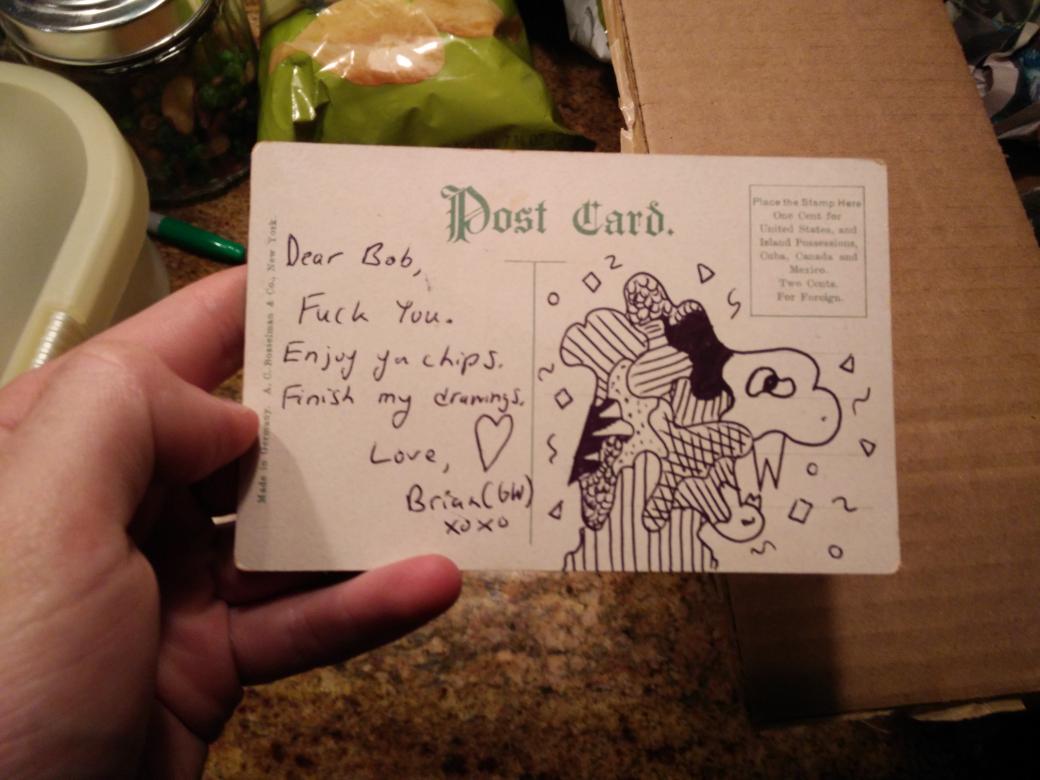 Post Card.
Place the Stamp Here
One Cent for
United States, and
Island Possessions,
Cuba, Canada and
Mexico.
Two Cents.
For Foreign.
Made in Germany. A. C. Bosselman & Co., New York.
Dear Bob,
Fuck You.
Enjoy yer chips.
Finish my drawings.
Love, ♡
Brian(GW)
xoxo